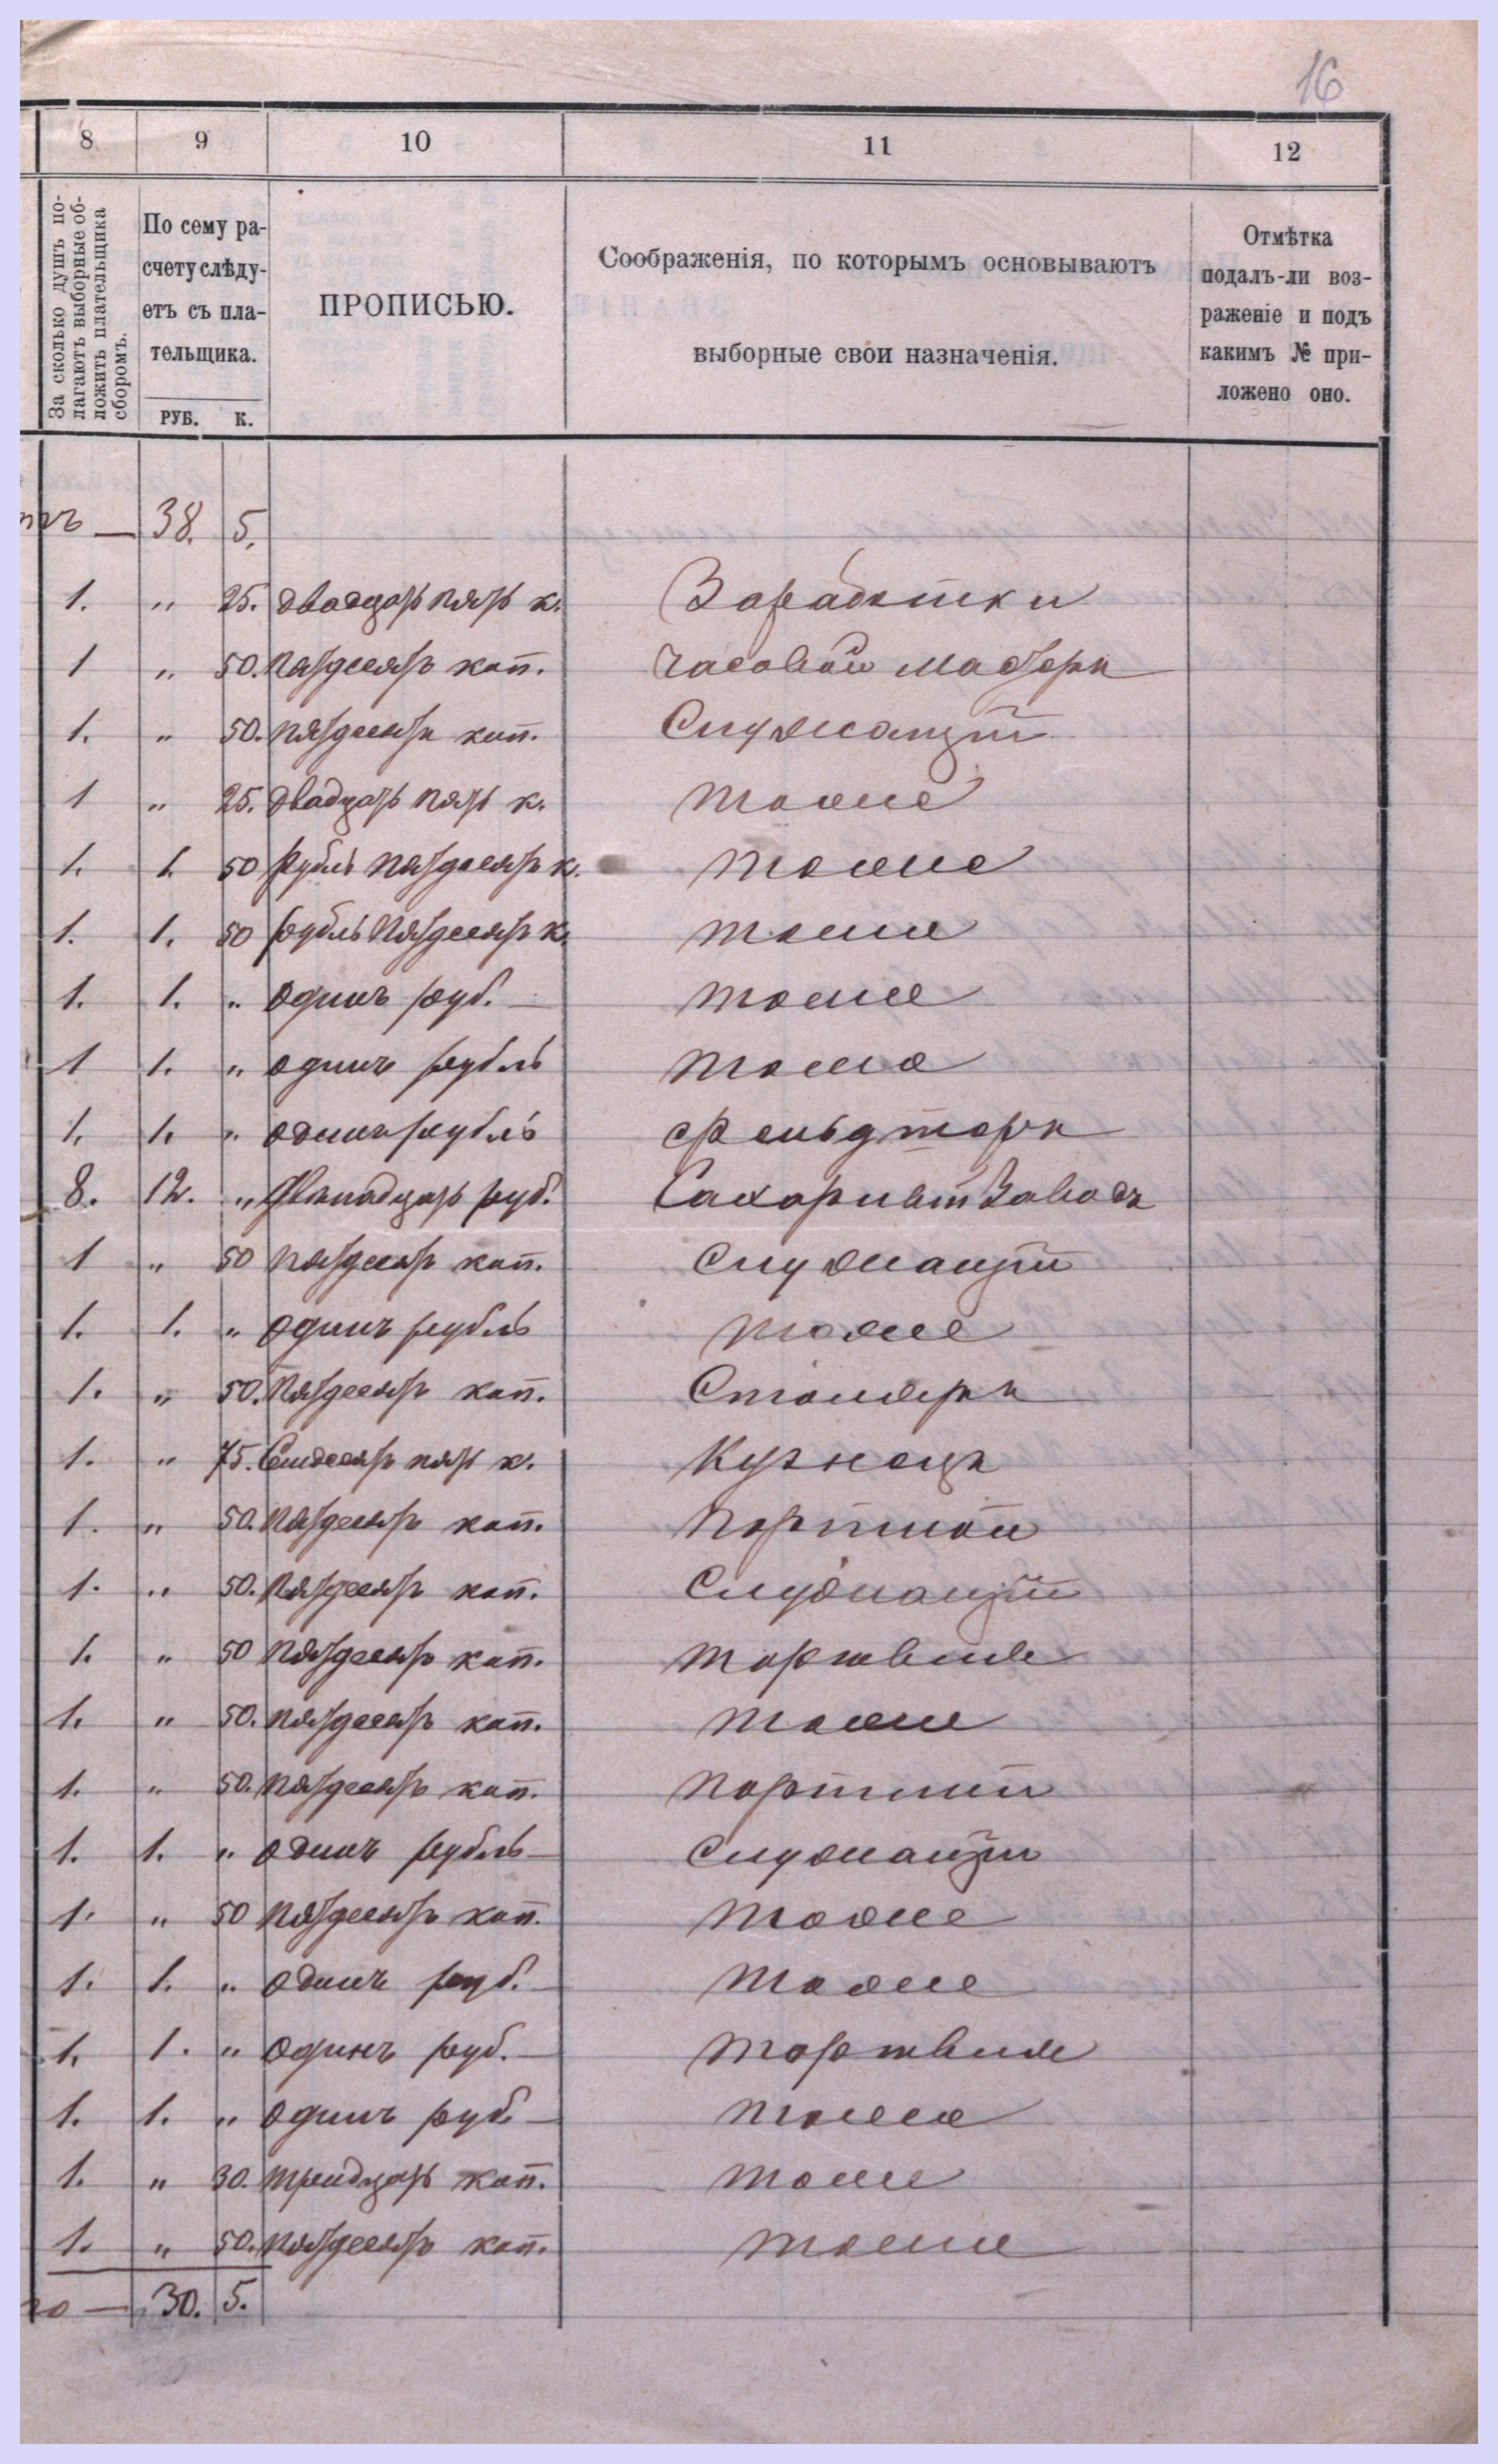 16
8 9 10 11 12
За сколько душъ по-
лагаютъ выборные об-
ложить плательщика
сборомъ.
По сему ра-
счету слѣду-
етъ съ пла-
тельщика.
РУБ. К.
ПРОПИСЬЮ.
Соображенія, по которымъ основываютъ
выборные свои назначенія.
Отмѣтка
подалъ-ли воз-
раженіе и подъ
какимъ № при-
ложено оно.
— 38. 5.
1. " 25. двадцать пять к. Заработки
1 " 50. пятдесятъ коп. Часовой мастеръ
1. " 50. пятдесятъ коп. Служащій
1 " 25. двадцать пять к. тоже
1. 1. 50 рубль пятдесятъ к. тоже
1. 1. 50 рубль пятдесятъ к. тоже
1. 1. " одинъ руб. — тоже
1 1. " одинъ рубль тоже
1. 1. " одинъ рубль фельдшеръ
8. 12. " Двѣнадцать руб. Сахарный Заводъ
1 " 50 пятдесятъ коп. Служащій
1. 1. " одинъ рубль тоже
1. " 50. пятдесятъ коп. Столяръ
1. " 75. Семдесятъ пять к. Кузнецъ
1. " 50. пятдесятъ коп. Портной
1. " 50. пятдесятъ коп. Служащій
1. " 50 пятдесятъ коп. торговля
1. " 50. пятдесятъ коп. тоже
1. " 50. пятдесятъ коп. Портной
1. 1. " одинъ рубль — Служащій
1. " 50 пятдесятъ коп. тоже
1. 1. " одинъ руб. — тоже
1. 1. " одинъ руб. — торговля
1. 1. " одинъ руб — тоже
1. " 30. тридцать коп. тоже
1. " 50. пятдесятъ коп. тоже
— 30. 5.